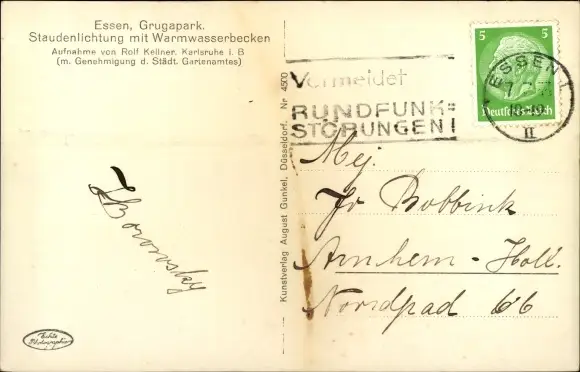 Essen, Grugapark.
Staudenlichtung mit Warmwasserbecken
Aufnahme von Rolf Kellner, Karlsruhe i. B
(m. Genehmigung d. Städt. Gartenamtes)
Borowsky
Echte
Photographie
Kunstverlag August Gunkel, Düsseldorf. Nr 4500
Vermeidet
RUNDFUNK=
STÖRUNGEN!
5 5
Deutsches Reich
ESSEN
II
Mej.
Jr Bobbink
Arnhem - Holl.
Noordpad 66